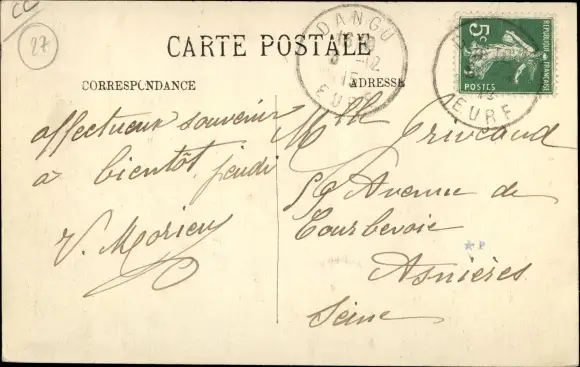 CC
27
CARTE POSTALE
CORRESPONDANCE
ADRESSE
DANGU
15
EURE
5c
REPUBLIQUE FRANCAISE
POSTES
EURE
affectueux souvenir
à bientôt, jeudi
V. Morieu
Mlle
59 Avenue de
Courbevoie
Asnières
Seine